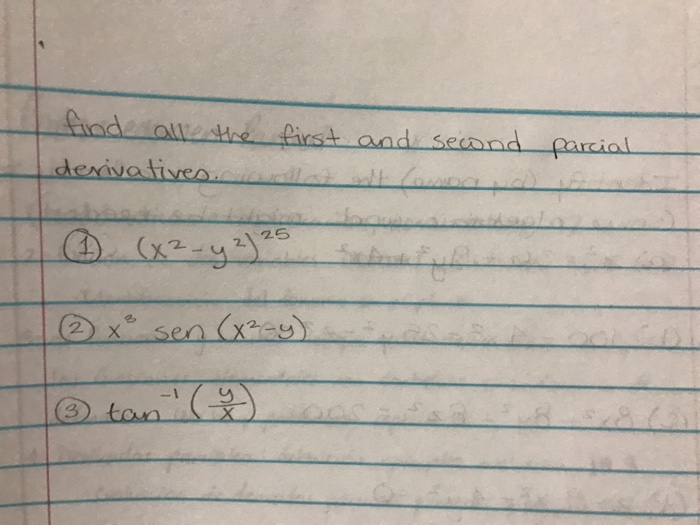 find all the first and second parcial
derivatives.
① (x²-y²)²⁵
② x³ sen (x²-y)
③ tan⁻¹ (y/x)